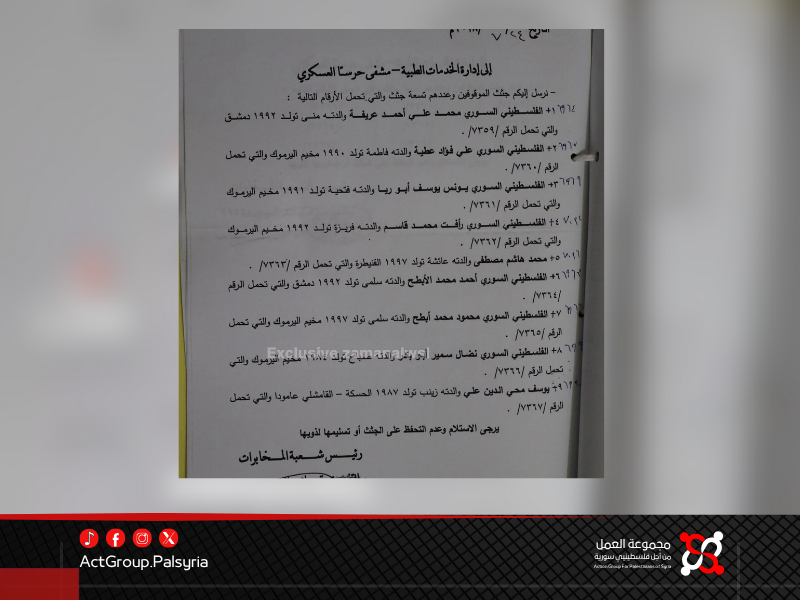 إلى إدارة الخدمات الطبية – مشفى حرستا العسكري
– نرسل إليكم جثث الموقوفين وعددهم تسعة جثث والتي تحمل الأرقام التالية :
١+ الفلسطيني السوري محمد علي أحمد عريفة والدته منى تولد ١٩٩٢ دمشق
والتي تحمل الرقم /٧٣٥٩/ .
٢+ الفلسطيني السوري علي فؤاد عطية والدته فاطمة تولد ١٩٩٠ مخيم اليرموك والتي تحمل
الرقم /٧٣٦٠/ .
٣+ الفلسطيني السوري يونس يوسف أبو ريا والدته فتحية تولد ١٩٩١ مخيم اليرموك
والتي تحمل الرقم /٧٣٦١/ .
٤+ الفلسطيني السوري رأفت محمد قاسم والدته فريزة تولد ١٩٩٢ مخيم اليرموك
والتي تحمل الرقم /٧٣٦٢/ .
٥+ محمد هاشم مصطفى والدته عائشة تولد ١٩٩٧ القنيطرة والتي تحمل الرقم /٧٣٦٣/ .
٦+ الفلسطيني السوري أحمد محمد الأبطح والدته سلمى تولد ١٩٩٢ دمشق والتي تحمل الرقم
/٧٣٦٤/ .
٧+ الفلسطيني السوري محمود محمد أبطح والدته سلمى تولد ١٩٩٧ مخيم اليرموك والتي تحمل
الرقم /٧٣٦٥/ .
٨+ الفلسطيني السوري نضال سمير والدته تولد مخيم اليرموك والتي
تحمل الرقم /٧٣٦٦/ .
Exclusive zamanalwsl
٩+ يوسف محي الدين علي والدته زينب تولد ١٩٨٧ الحسكة – القامشلي عامودا والتي تحمل
الرقم /٧٣٦٧/ .
يرجى الاستلام وعدم التحفظ على الجثث أو تسليمها لذويها
رئيس شعبة المخابرات
ActGroup.Palsyria
مجموعة العمل
من أجل فلسطينيي سورية
Action Group For Palestinians of Syria